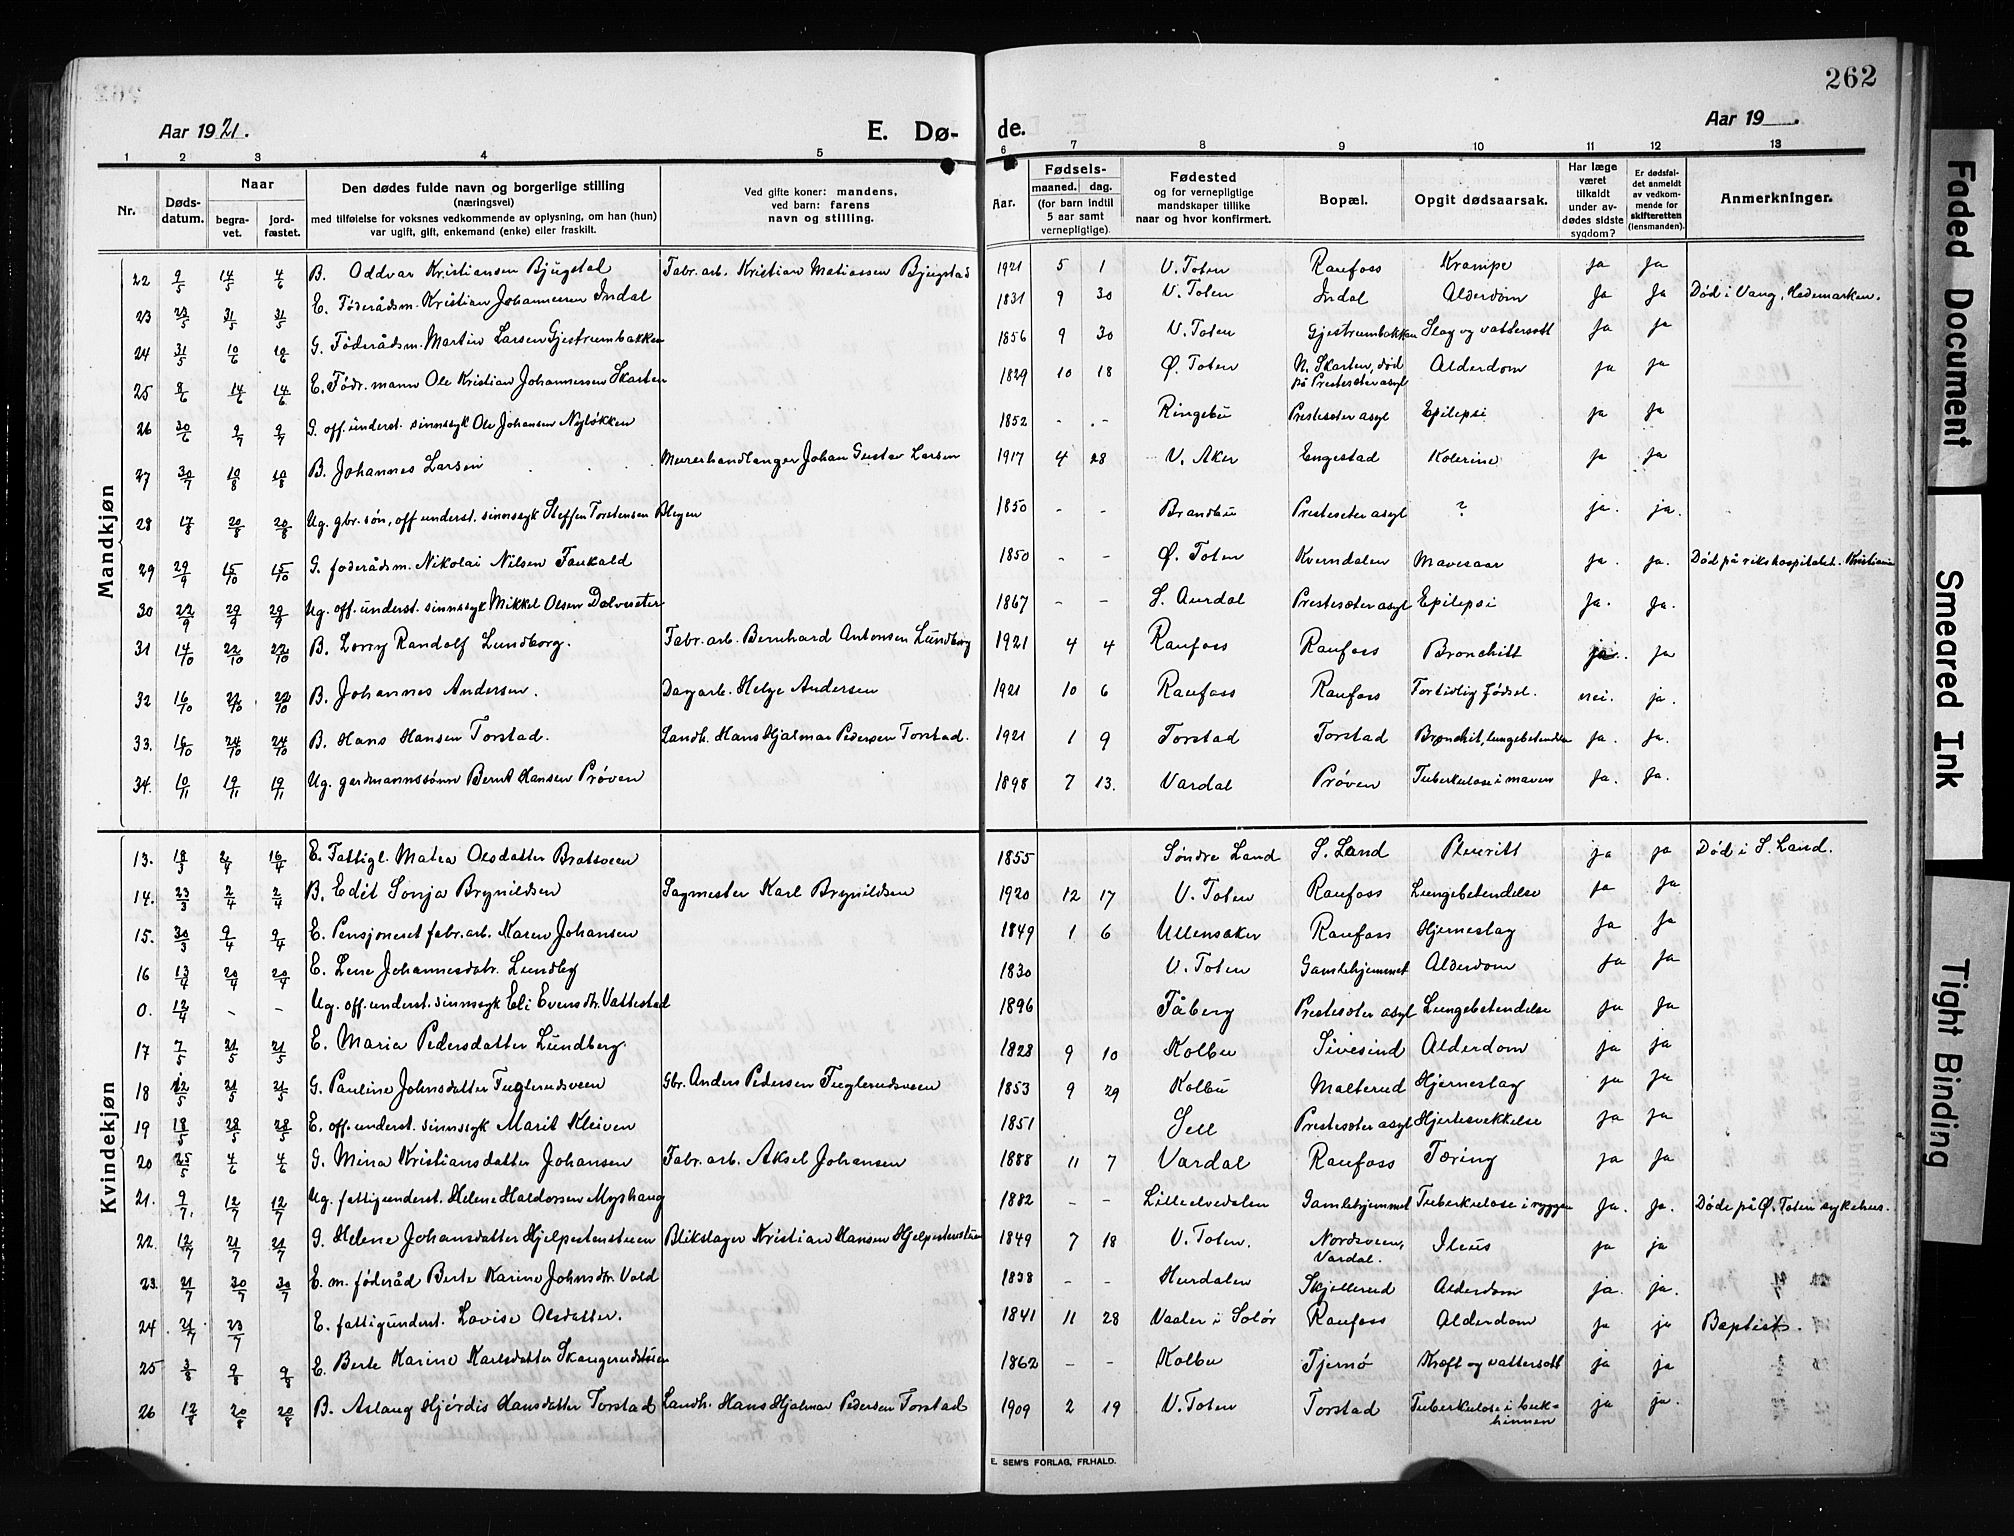 262
Aar 1921.
E. Dø- de.
Aar 19
1 2 3 4 5 6 7 8 9 10 11 12 13
Nr.
Døds-
datum.
Naar
begra-
vet.
jord-
fæstet.
Den dødes fulde navn og borgerlige stilling
(næringsvei)
med tilføielse for voksnes vedkommende av oplysning, om han (hun)
var ugift, gift, enkemand (enke) eller fraskilt.
Ved gifte koner: mandens,
ved barn: farens
navn og stilling.
Aar.
Fødsels-
maaned. dag.
(for barn indtil
5 aar samt
vernepligtige).
Fødested
og for vernepligtige
mandskaper tillike
naar og hvor konfirmert.
Bopæl.
Opgit dødsaarsak.
Har læge
været
tilkaldt
under av-
dødes sidste
sygdom?
Er dødsfal-
det anmeldt
av vedkom-
mende for
skifteretten
(lensmanden).
Anmerkninger.
Mandkjøn
22 9/5 14/5 4/6 B. Oddvar Kristiansen Bjugstad Fabr. arb. Kristian Matiassen Bjugstad 1921 5 1 V. Toten Raufoss Krampe ja ja
23 23/5 31/5 31/5 E. Føderådsm. Kristian Johannessen Indal 1831 9 30 V. Toten Indal Alderdom ja ja Død i Vang, Hedemarken.
24 31/5 10/6 10/6 G. Føderådsm. Martin Larsen Gjestrumbakken 1856 9 30 V. Toten Gjestrumbakken Slag og vattersott ja ja
25 8/6 14/6 14/6 E. Fødr. mann Ole Kristian Johannessen Skarten 1829 10 18 Ø. Toten N. Skarten, død på Prestesæter asyl Alderdom ja ja
26 30/6 9/7 9/7 G. off. underst. sinnssyk Ole Johansen Nyløkken 1852 - - Ringebu Prestesæter asyl Epilepsi ja ja
27 30/7 10/8 10/8 B. Johannes Larsen Murerhandlanger Johan Gustav Larsen 1917 4 28 V. Aker Engestad Kolerine ja ja
28 17/8 20/8 20/8 Ug. gbr. søn, off underst. sinnssyk Steffen Torstensen Blegen 1850 - - Brandbu Prestesæter asyl ? ja. ja.
29 29/9 15/10 15/10 G. foderådsm. Nikolai Nilsen Faukald 1850 - - Ø. Toten Kverndalen Mavesaar ja. ja. Død på rikshospitalet. Kristiania
30 22/9 29/9 29/9 Ug. off. underst. sinnssyk Mikkel Olsen Dalveseter 1867 - - S. Aurdal Prestesæter asyl Epilepsi ja. ja.
31 14/10 22/10 22/10 B. Lorry Randolf Lundborg. Fabr. arb. Bernhard Antonsen Lundborg 1921 4 4 Raufoss Raufoss Bronchitt ja. ja
32 16/10 22/10 22/10 B. Johannes Andersen. Dagarb. Helge Andersen 1921 10 6 Raufoss Raufoss Fortidlig fødsel. nei. ja.
33. 16/10 24/10 24/10 B. Hans Hansen Torstad. Landh. Hans Hjalmar Pedersen Torstad. 1921 1 9 Torstad Torstad Bronchit, lungebetendelse ja. ja.
34. 10/11 19/11 19/11 Ug. gardmannssønn Bernt Hansen Prøven 1898 7 13. Vardal Prøven Tuberkulose i maven ja. ja.
Kvindekjøn
13. 18/3 2/4 16/4 E. Fattigl. Matea Olsdatter Bratsveen 1855 Søndre Land S. Land Pleuritt ja ja Død i S. Land.
14. 23/3 2/4 2/4 B. Edit Sonja Brynildsen Sagmester Karl Brynildsen 1920 12 17 V. Toten Raufoss Lungebetendelse ja ja
15. 30/3 9/4 9/4 E. Pensjoneret fabr. arb. Karen Johansen 1849 1 6 Ullensaker Raufoss Hjerneslag ja ja
16 13/4 20/4 20/4 E. Lene Johannesdatr. Lundby 1830 V. Toten Gamlehjemmet Alderdom ja ja
0. 12/4 - - Ug. off. underst. sinnssyk Eli Evensdtr. Vattestad 1896 Fåberg Prestesæter asyl Lungebetendelse ja ja
17 7/5 21/5 21/5 E. Maria Pedersdatter Lundberg. 1828 9 10 Kolbu Sivesind Alderdom ja ja
18 12/5 21/5 21/5 G. Pauline Johnsdatter Fuglerudsveen Gbr. Anders Pedersen Fuglerudsveen 1853 9 29 Kolbu Malterud Hjerneslag ja ja
19 18/5 28/5 28/5 E. off. underst. sinnssyk Marit Kleiven 1851 Sell Prestesæter asyl Hjertesvekkelse ja ja
20 25/5 4/6 4/6 G. Mina Kristiansdatter Johansen Fabr. arb. Aksel Johansen 1888 11 7 Vardal Raufoss Tæring ja ja
21. 9/7. 12/7 12/7 Ug. fattigunderst. Helene Haldorsen Myshaug 1882 - - Lilleelvedalen Gamlehjemmet Tuberkulose i ryggen ja. ja. Døde på Ø. Toten sykehus.
22. 12/7 21/7 21/7 G. Helene Johansdatter Hjelpestensteen Blikslager Kristian Hansen Hjelpestensteen 1849 7 18 V. Toten. Nordsveen, Vardal. Ileus ja ja
23. 21/7 30/7 30/7 E. m. føderåd Berte Karine Johnsdtr. Vold 1838 - - Hurdalen Skjellerud Alderdom ja. ja.
24 21/7 23/7 E. fattigunderst. Lovise Olsdatter. 1841 11 28 Vaaler i Solør Raufoss Alderdom ja ja Baptist.
25 3/8 9/8 9/8 E. Berte Karine Karlsdatter Skangerudsteien 1862 - - Kolbu Tjernø Kræft og vattersott ja ja
26 12/8 20/8 20/8 B. Aslaug Hjørdis Hansdatter Torstad Landh. Hans Hjalmar Pedersen Torstad 1909 2 19 V. Toten Torstad Tuberkulose i bukhinnen ja ja.
E. SEM'S FORLAG, FR.HALD.
Faded Document
Smeared Ink
Tight Binding